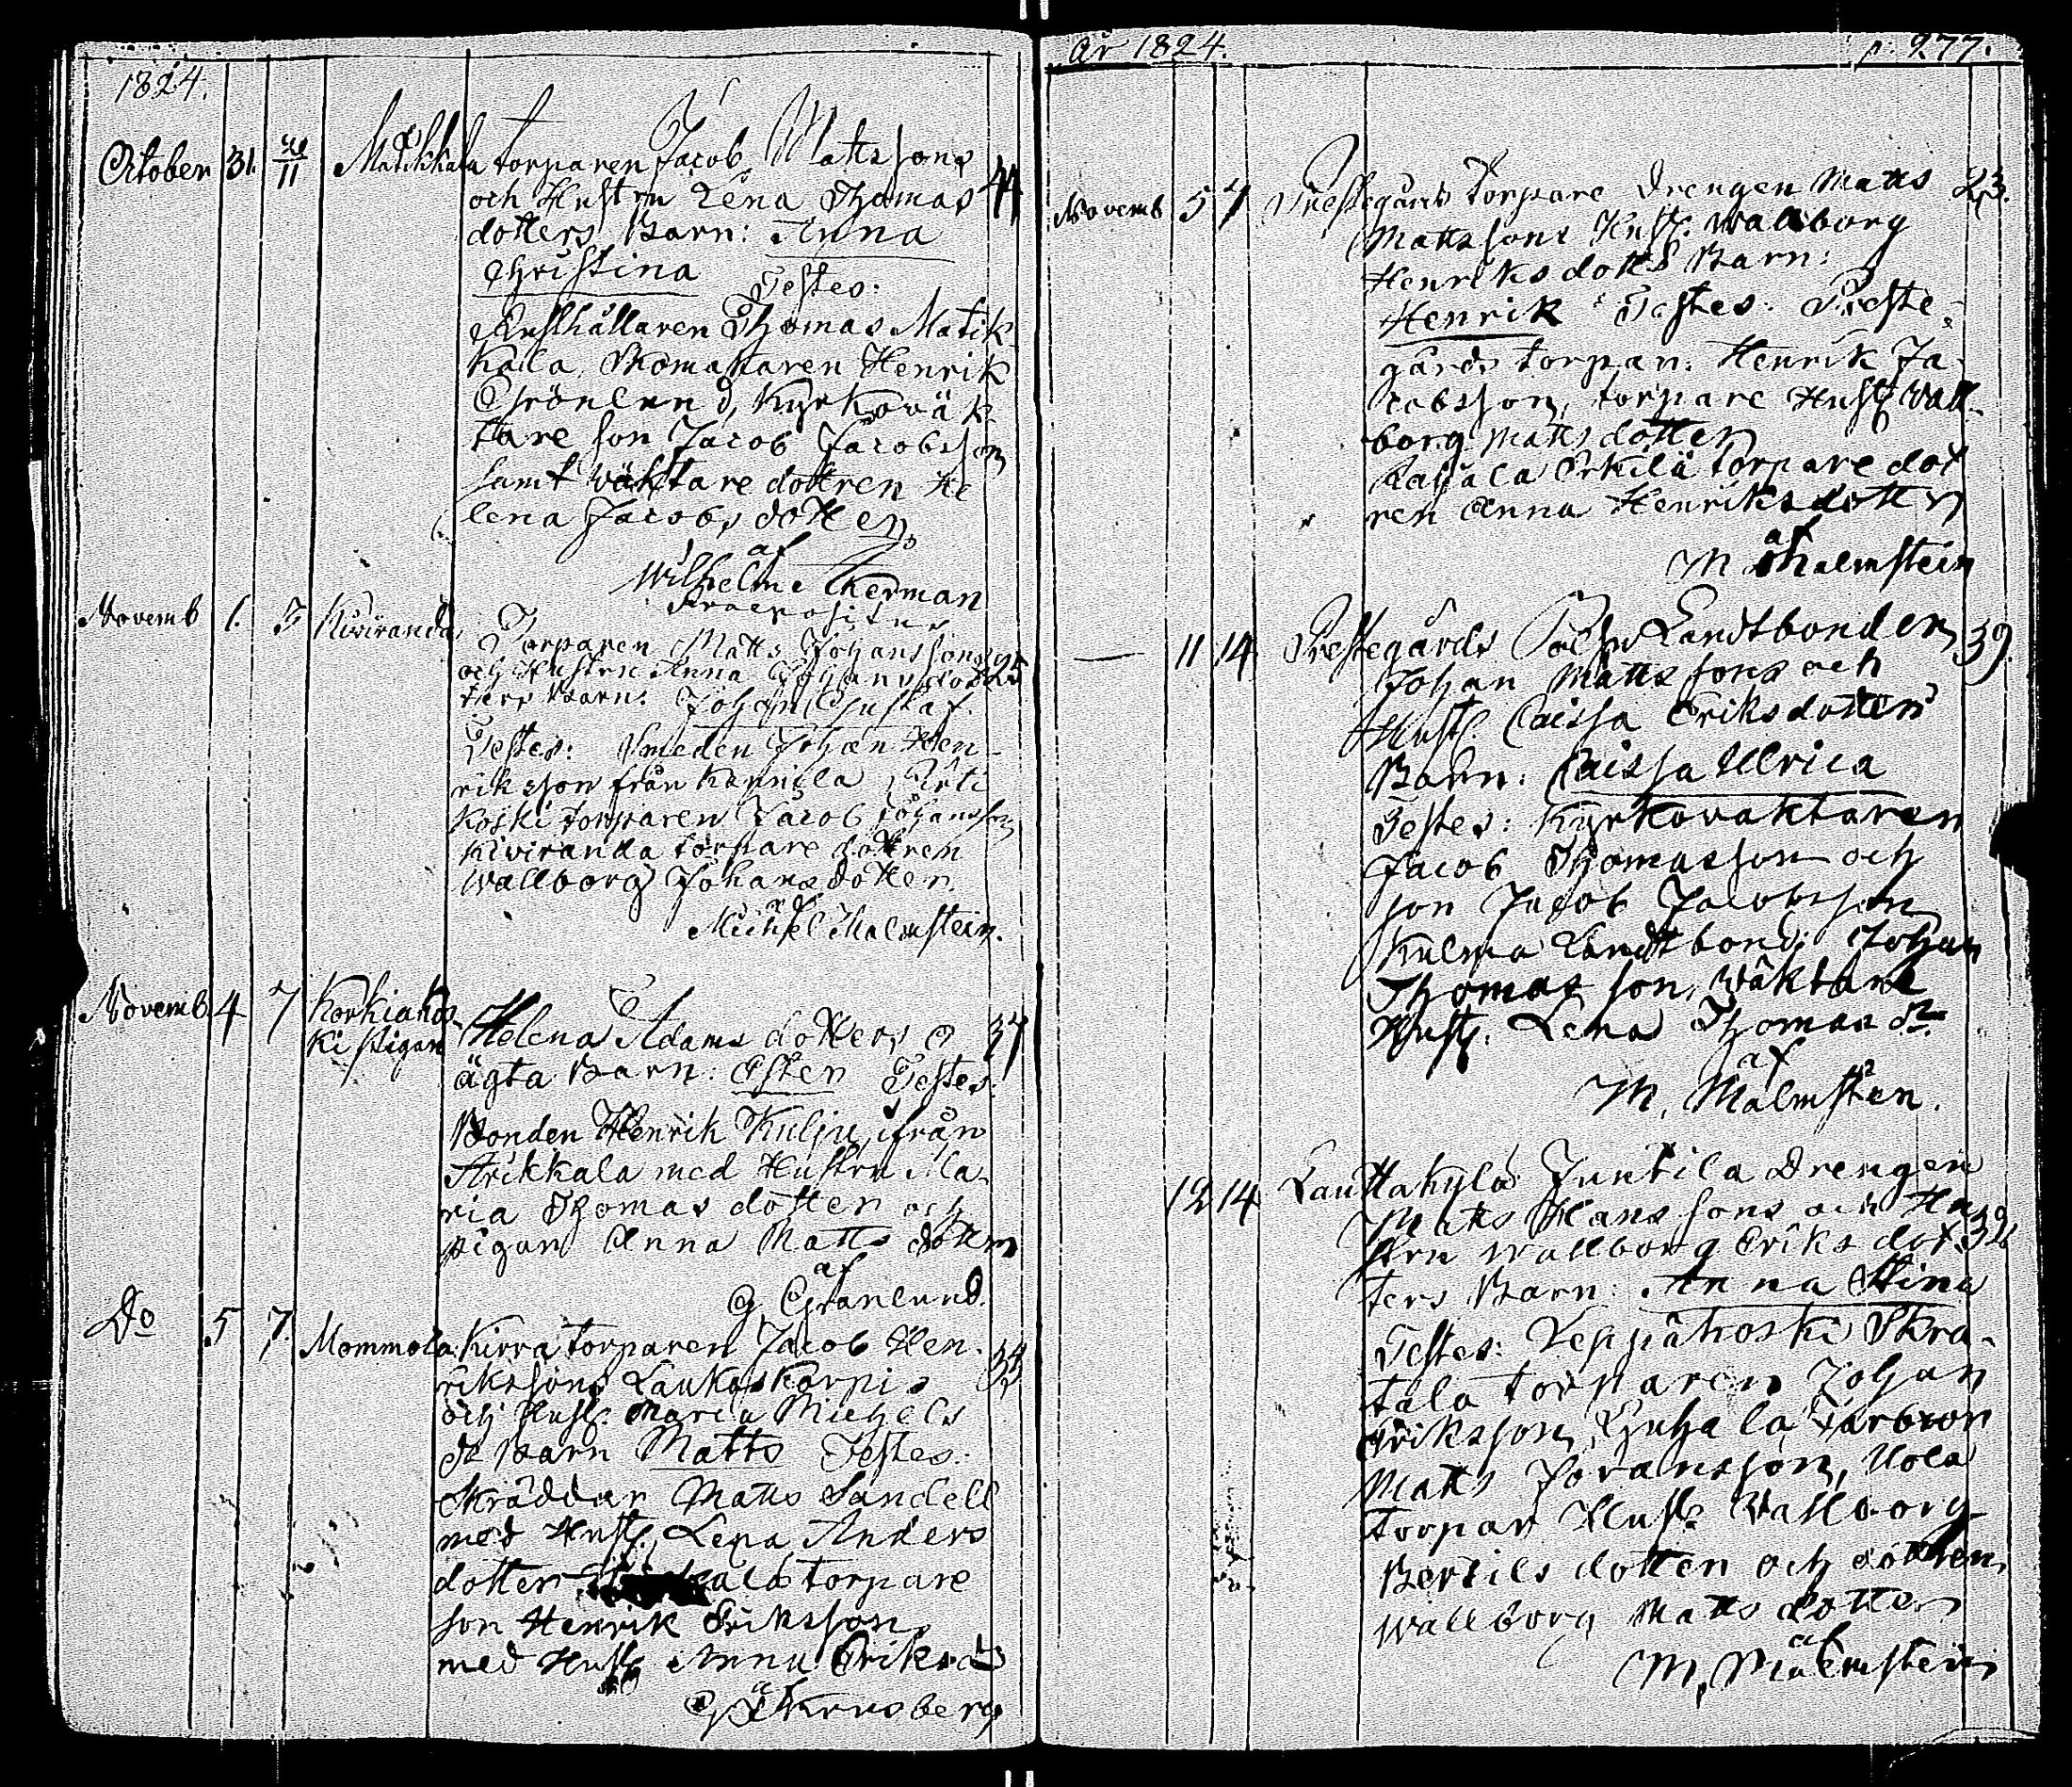 1824.
October 31. 11 Matikkala torparen Jacob Mattssons 44
och Hustru Lena Thomas
dotters Barn: Anna
Christina Testes:
Rusthållaren Thomas Matik-
kala, Skomakaren Henrik
Grönlund, Kyrkowäk
tare son Jacob Jacobsson
samt wäktare dottren He
lena Jacobs dotter
af
Wilhelm Åkerman
Praepositus
Novemb 1. 3 Kiviranda
Torparen Matts Johanssons 25
och Hustru Anna Johans dot
ters Barn: Johan Gustaf.
Testes: Smeden Johan Hen-
riksson från Kannila
koski torparen Jacob Johansson
Kiviranda torpare dottren
Wallborg Johans dotter.
af
Michel Malmstein.
Novemb. 4 7 Korkiakos-
ki pigan Helena Adams dotters o 37
ägta Barn: Ester Testes:
Bonden Henrik Kulju ifrån
Arikkala med Hustru Ma-
ria Thomas dotter och
pigan Anna Matts dotter
af
G Granlund.
Do 5 7. Mommola Kirra torparen Jacob Hen-
rikssons Laukaskorpis 34
och Hust. Maria Michels
dr Barn Matts Testes:
Skräddar Matts Sandell
med Hust. Lena Anders
dotter torpare
son Henrik Eriksson
med Hust Anna Eriks dr
af
År 1824. p. 277.
Novemb 5 7 Prestegårds torpare Drengen Matts 23.
Mattssons Hust. Wallborg
Henriks dotters Barn:
Henrik Testes: Preste-
gårds torpar. Henrik Ja-
cobsson, torpare Hust Wall-
borg Matts dotter
Erkilä torpare dot
ren Anna Henriks dotter
af
M Malmstein
— 11 14 Prestegårds Landtbonden 39.
Johan Mattssons och
Hust. Caissa Eriks dotters
Barn: Caissa Ulrica
Testes: Kyrkovaktaren
Jacob Thomasson och
son Jacob Jacobsson
Kulma Landtbond: Johan
Thomas son, wäktare
Hust. Lena Thomas dr
af
M, Malmsten.
12 14 Lauttakylä Juntila Drengen
Matts Hans sons och Hu
stru Wallborg Eriks dot- 32
ters Barn: Anna Stina
Testes: Leppäkoski Skra-
tala torparen Johan
Eriksson, Farbror
Matts Johansson, Uola
torpar Hust Wallborg
Bertils dotter och dottren
Wallborg Matts dotter
af
M, Malmstein